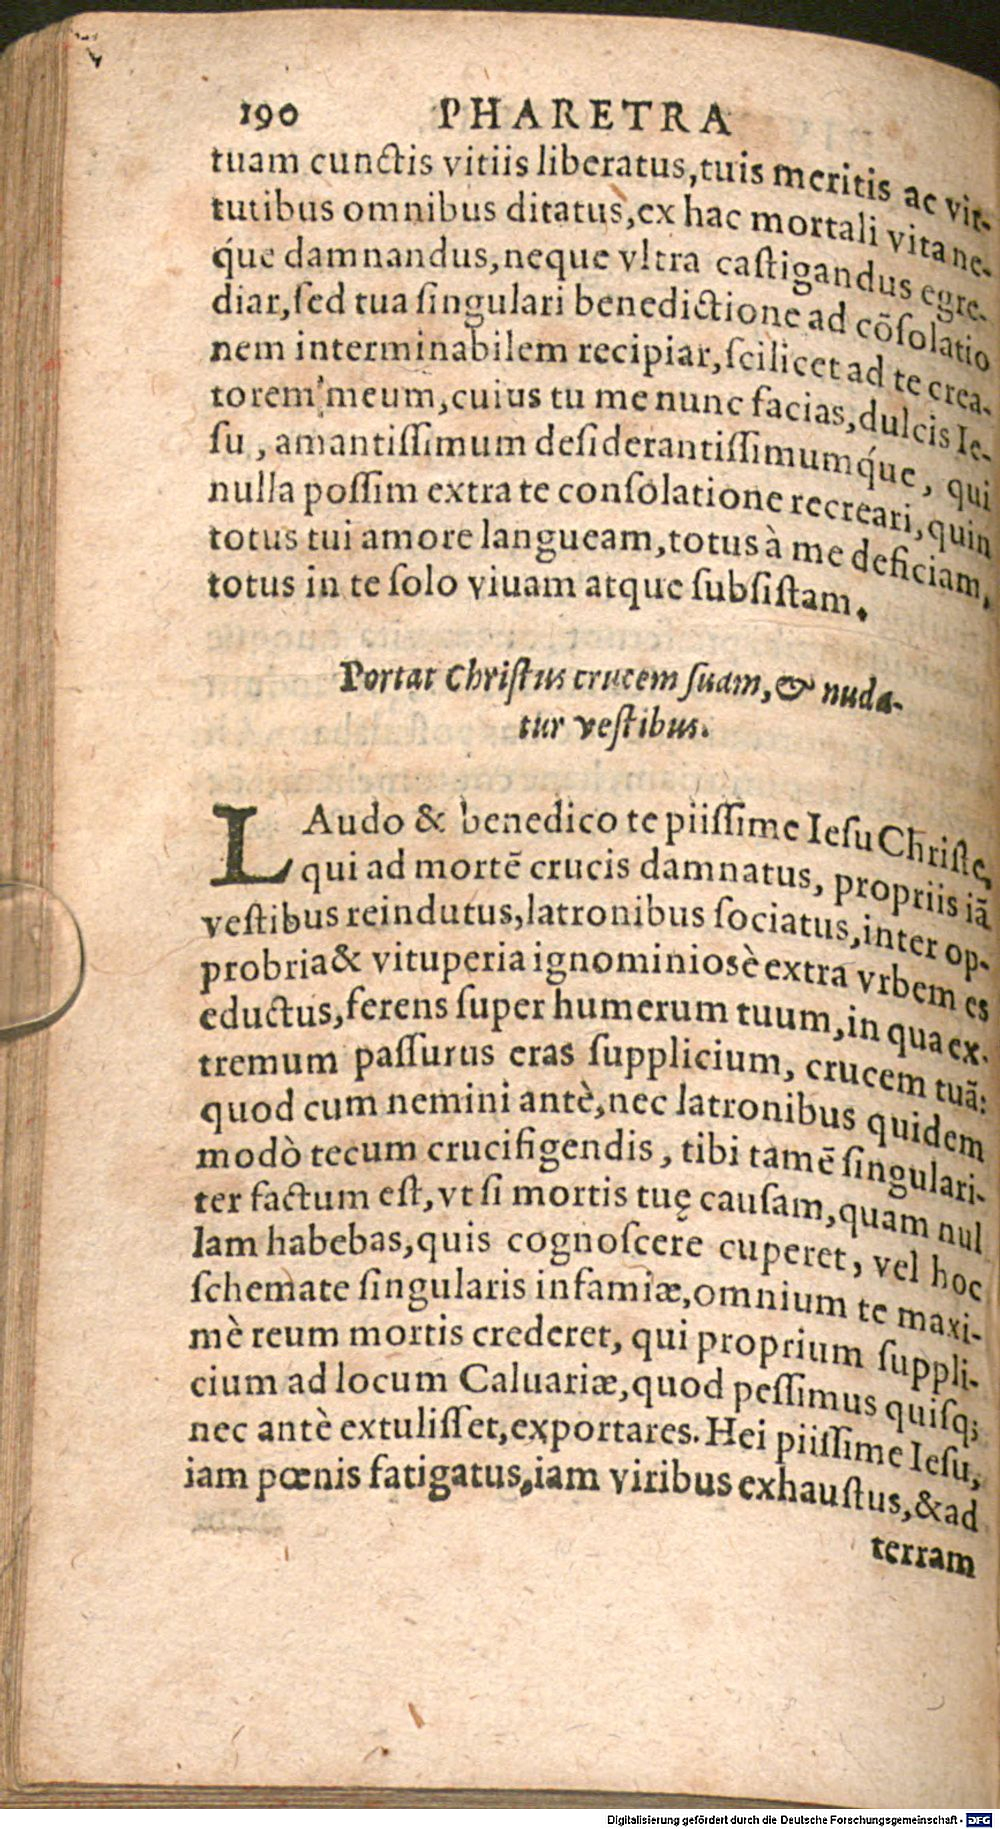 190 PHARETRA
tuam cunctis vitiis liberatus, tuis meritis ac vir-
tutibus omnibus ditatus, ex hac mortali vita ne-
q́ue damnandus, neque vltra castigandus egre-
diar, sed tua singulari benedictione ad cõsolatio
nem interminabilem recipiar, scilicet ad te crea-
torem meum, cuius tu me nunc facias, dulcis Ie-
su, amantissimum desiderantissimumq́ue, qui
nulla possim extra te consolatione recreari, quin
totus tui amore langueam, totus à me deficiam,
totus in te solo viuam atque subsistam.
Portat Christus crucem suam, & nuda-
tur vestibus.
LAudo & benedico te piissime Iesu Christe,
qui ad mortẽ crucis damnatus, propriis iã
vestibus reindutus, latronibus sociatus, inter op-
probria & vituperia ignominiosè extra vrbem es
eductus, ferens super humerum tuum, in qua ex-
tremum passurus eras supplicium, crucem tuã:
quod cum nemini antè, nec latronibus quidem
modò tecum crucifigendis, tibi tamẽ singulari-
ter factum est, vt si mortis tuę causam, quam nul
lam habebas, quis cognoscere cuperet, vel hoc
schemate singularis infamiæ, omnium te maxi-
mè reum mortis crederet, qui proprium suppli-
cium ad locum Caluariæ, quod pessimus quisq;
nec antè extulisset, exportares. Hei piissime Iesu,
iam pœnis fatigatus, iam viribus exhaustus, & ad
terram
Digitalisierung gefördert durch die Deutsche Forschungsgemeinschaft - DFG